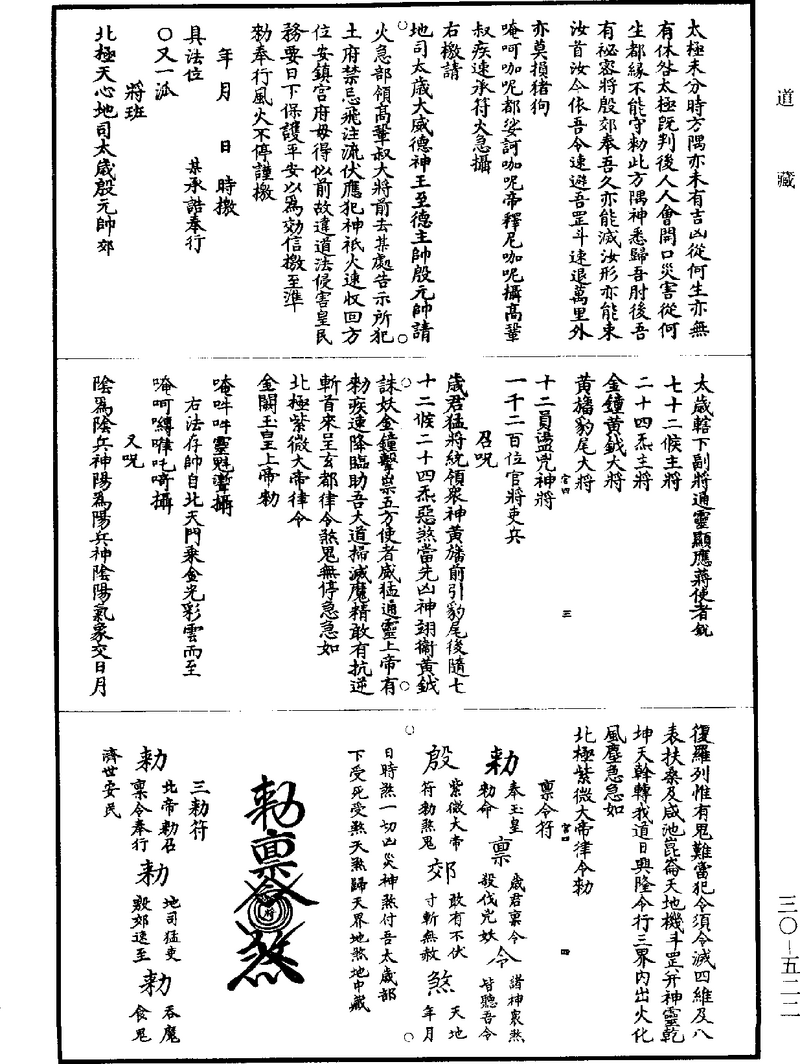 道藏
太極未分時方隅亦未有吉凶從何生亦無
有休咎太極既判後人人會開口災害從何
生都緣不能守勑此方隅神悉歸吾肘後吾
有祕容將殷郊奉吾久亦能滅汝形亦能束
汝首汝今依吾令速避吾罡斗速退萬里外
亦莫損猪狗
唵呵咖呢都娑訶咖呢帝釋尼咖呢攝高鞏
叔疾速承符火急攝
右檄請
地司太歲大威德神王至德主帥殷元帥請
火急部領高鞏叔大將前去某處告示所犯
土府禁忌飛注流伏應犯神祇火速收回方
位安鎮宫府毋得似前故違道法侵害皇民
務要日下保護平安以爲効信檄至準
勑奉行風火不停謹檄
年月日時檄
具法位某承誥奉行
○又一派
將班
北極天心地司太歲殷元帥郊
太歲轄下副將通靈顯應蔣使者銳
七十二候主將
二十四炁主將
金鐘黃鉞大將
黃旛豹尾大將
十二員盪兇神將
一千二百位官將吏兵
召呪
歲君猛將統領衆神黃旛前引豹尾後隨七
十二候二十四炁惡煞當先凶神翊衞黃鉞
誅妖金鐘擊祟五方使者威猛通靈上帝有
勑疾速降臨助吾大道掃滅魔精敢有抗逆
斬首來呈玄都律令煞鬼無停急急如
北極紫微大帝律令
金闕玉皇上帝勑
唵吽吽靈魁攝
右法存帥自北天門乘金光彩雲而至
唵呵嚩攝
又呪
陰爲陰兵神陽爲陽兵神陰陽氣象交日月
宫四
三
復羅列惟有鬼難當犯令須令滅四維及八
表扶桑及咸池崑崙天地機斗罡并神靈乾
坤天幹轉我道日興隆令行三界内出火化
風塵急急如
北極紫微大帝律令勑
宫四
四
禀令符
勑 奉玉皇勑命 禀 歲君禀令殺伐兇妖 令 諸神裏煞皆聽吾令
殷 紫微大帝符勑煞鬼 郊 敢有不伏寸斬無赦 煞 天地年月
日時煞一切凶災神煞付吾太歲部
下受死受煞天煞歸天界地煞地中藏
勑禀令煞
三勑符
勑 北帝勑召禀令奉行 勑 地司猛吏殷郊速至 勑 吞魔食鬼
濟世安民
三〇—五二二